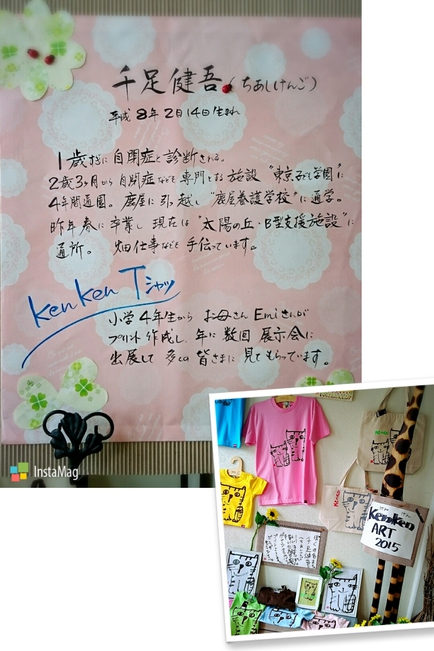 千足健吾(ちあしけんご)
平成8年2月14日生まれ
1歳すぎに自閉症と診断される。
2歳3ヶ月から自閉症などを専門とする施設"東京子ども学園"に
4年間通園。鹿屋に引越し"鹿屋養護学校"に通学。
昨年春に卒業し現在は"太陽の丘・B型支援施設"に
通所。畑仕事なども手伝っています。
KenKen Tシャツ
小学4年生からお母さんEmiさんが
プリント作成し、年に数回展示会に
出展して多くの皆さまに見てもらっています。
InstaMag
KenKen
ART
2015